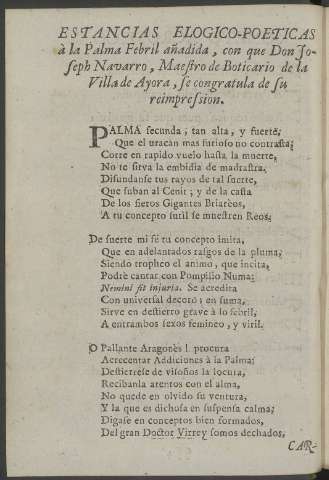 ESTANCIAS ELOGICO-POETICAS
à la Palma Febril añadida, con que Don Jo-
seph Navarro, Maestro de Boticario de la
Villa de Ayora, se congratula de su
reimpression.
PALMA fecunda, tan alta, y fuerte,
Que el uracan mas furioso no contrasta;
Corre en rapido vuelo hasta la muerte,
No te sirva la embidia de madrastra.
Difundanse tus rayos de tal suerte,
Que suban al Cenit; y de la casta
De los fieros Gigantes Briarèos,
A tu concepto sutil se muestren Reos.
De suerte mi fè tu concepto imita,
Que en adelantados rasgos de la pluma;
Siendo tropheo el animo, que incita,
Podrè cantar con Pompilio Numa;
Nemini fit injuria. Se acredita
Con universal decoro; en suma,
Sirve en destierro grave à lo febril,
A entrambos sexos femineo, y viril.
O Pallante Aragonès! procura
Acrecentar Addiciones à la Palma;
Destierrese de visoños la locura,
Recibanla atentos con el alma,
No quede en olvido su ventura,
Y la que es dichosa en suspensa calma;
Digase en conceptos bien formados,
Del gran Doctor Virrey somos dechados,
CAR-